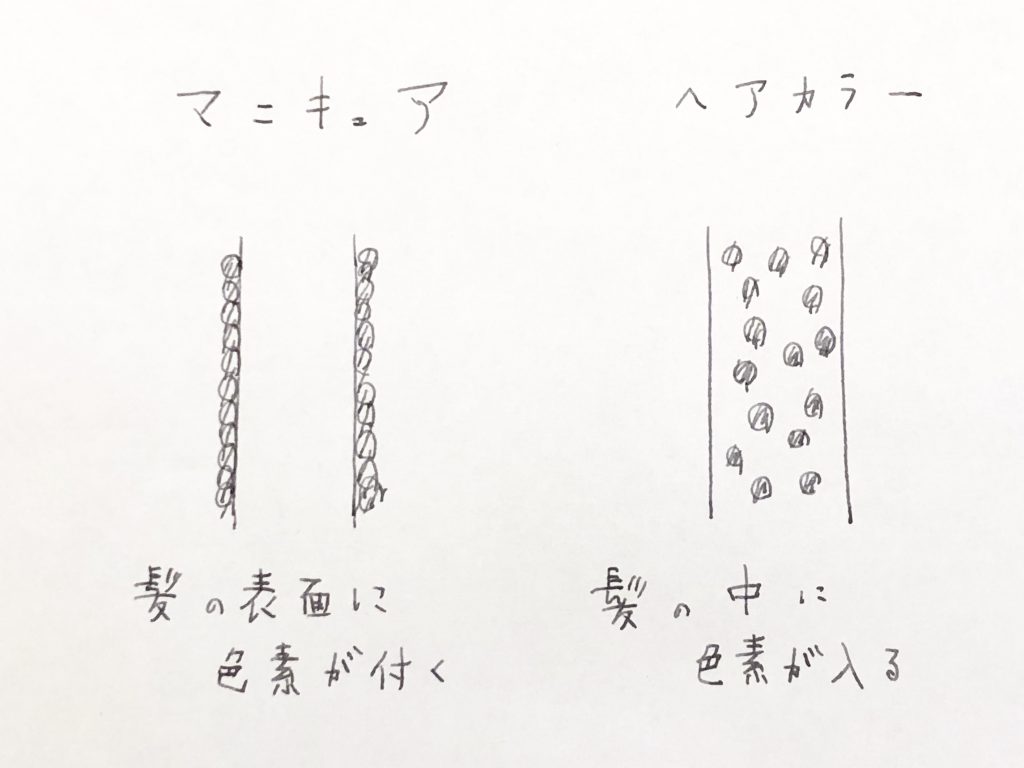 マニキュア
ヘアカラー
髪の表面に
色素が付く
髪の中に
色素が入る